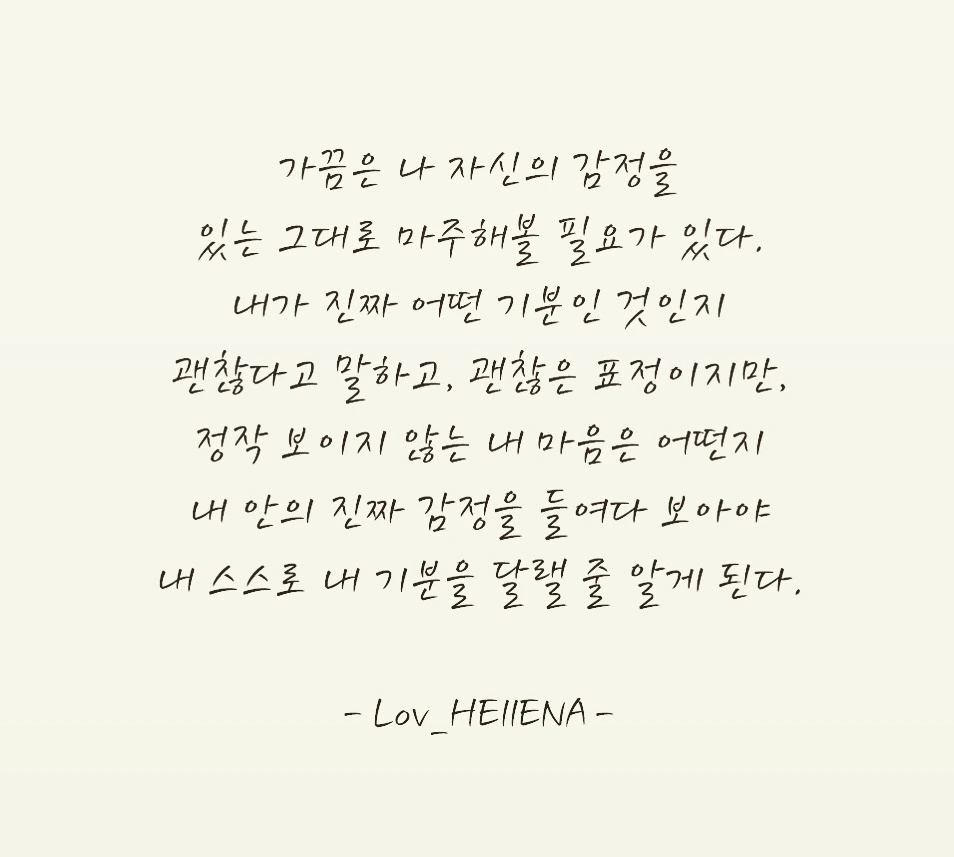 가끔은 나 자신의 감정을
있는 그대로 마주해볼 필요가 있다.
내가 진짜 어떤 기분인 것인지
괜찮다고 말하고, 괜찮은 표정이지만,
정작 보이지 않는 내 마음은 어떤지
내 안의 진짜 감정을 들여다 보아야
내 스스로 내 기분을 달랠 줄 알게 된다.
- Lov_HEllENA -